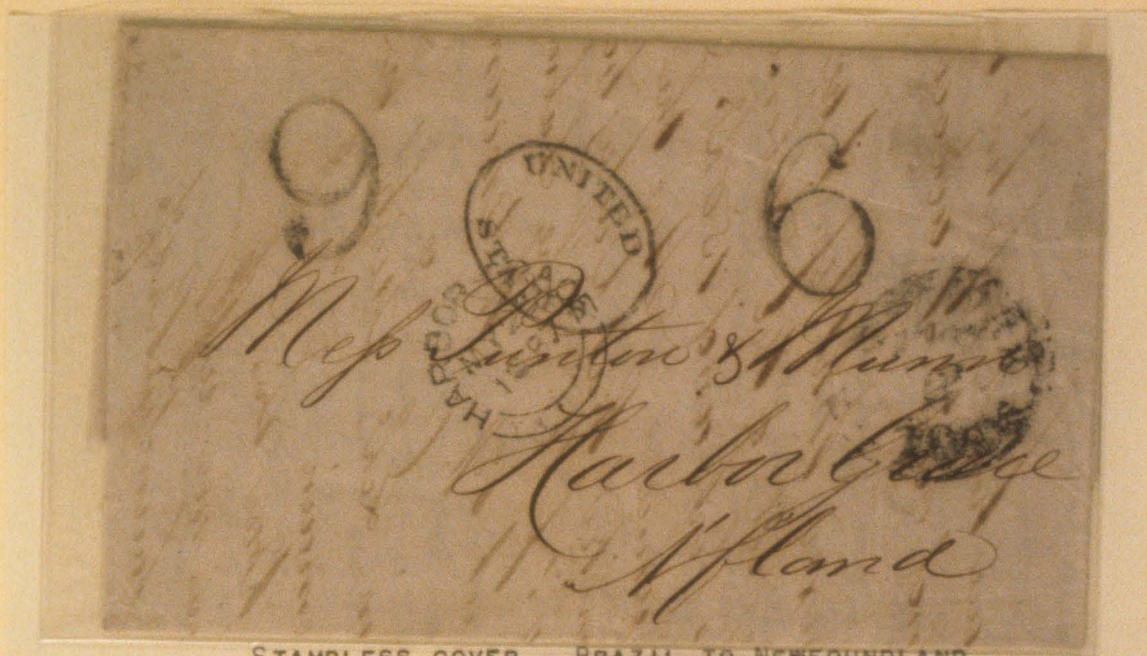 9 6
UNITED STATES
HARBOR GRACE
Mess Punton & Munn
Harbor Grace
Nfland
STAMPLESS COVER BRAZIL TO NEWFOUNDLAND